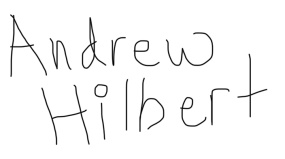 Andrew
Hilbert